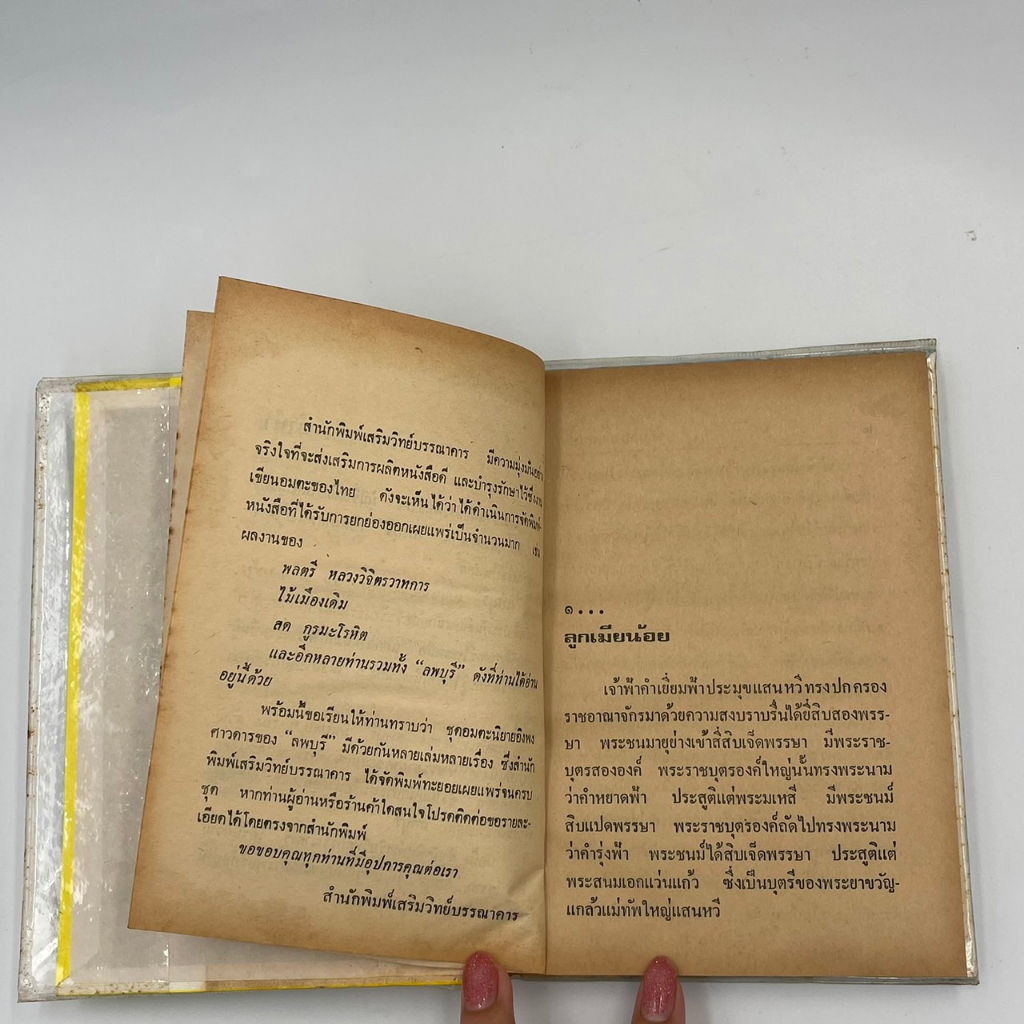 สำนักพิมพ์เสริมวิทย์บรรณาคาร มีความมุ่งมั่นอย่าง
จริงใจที่จะส่งเสริมการผลิตหนังสือดี และบำรุงรักษาไว้ซึ่งงาน
เขียนอมตะของไทย ดังจะเห็นได้ว่าได้ดำเนินการจัดพิมพ์
หนังสือที่ได้รับการยกย่องออกเผยแพร่เป็นจำนวนมาก เช่น
ผลงานของ
พลตรี หลวงวิจิตรวาทการ
ไม้เมืองเดิม
สด กูรมะโรหิต
และอีกหลายท่านรวมทั้ง “ลพบุรี” ดังที่ท่านได้อ่าน
อยู่นี้ด้วย
พร้อมนี้ขอเรียนให้ท่านทราบว่า ชุดอมตะนิยายอิงพง
ศาวดารของ “ลพบุรี” มีด้วยกันหลายเล่มหลายเรื่อง ซึ่งสำนัก
พิมพ์เสริมวิทย์บรรณาคาร ได้จัดพิมพ์ทะยอยเผยแพร่จนครบ
ชุด หากท่านผู้อ่านหรือร้านค้าใดสนใจโปรดติดต่อขอรายละ-
เอียดได้โดยตรงจากสำนักพิมพ์
ขอขอบคุณทุกท่านที่มีอุปการคุณต่อเรา
สำนักพิมพ์เสริมวิทย์บรรณาคาร
๑...
ลูกเมียน้อย
เจ้าฟ้าคำเยี่ยมฟ้าประมุขแสนหวีทรงปกครอง
ราชอาณาจักรมาด้วยความสงบราบรื่นได้ยี่สิบสองพรร-
ษา พระชนมายุย่างเข้าสี่สิบเจ็ดพรรษา มีพระราช-
บุตรสององค์ พระราชบุตรองค์ใหญ่นั้นทรงพระนาม
ว่าคำหยาดฟ้า ประสูติแต่พระมเหสี มีพระชนม์
สิบแปดพรรษา พระราชบุตรองค์ถัดไปทรงพระนาม
ว่าคำรุ่งฟ้า พระชนม์ได้สิบเจ็ดพรรษา ประสูติแต่
พระสนมเอกแว่นแก้ว ซึ่งเป็นบุตรีของพระยาขวัญ-
แกล้วแม่ทัพใหญ่แสนหวี